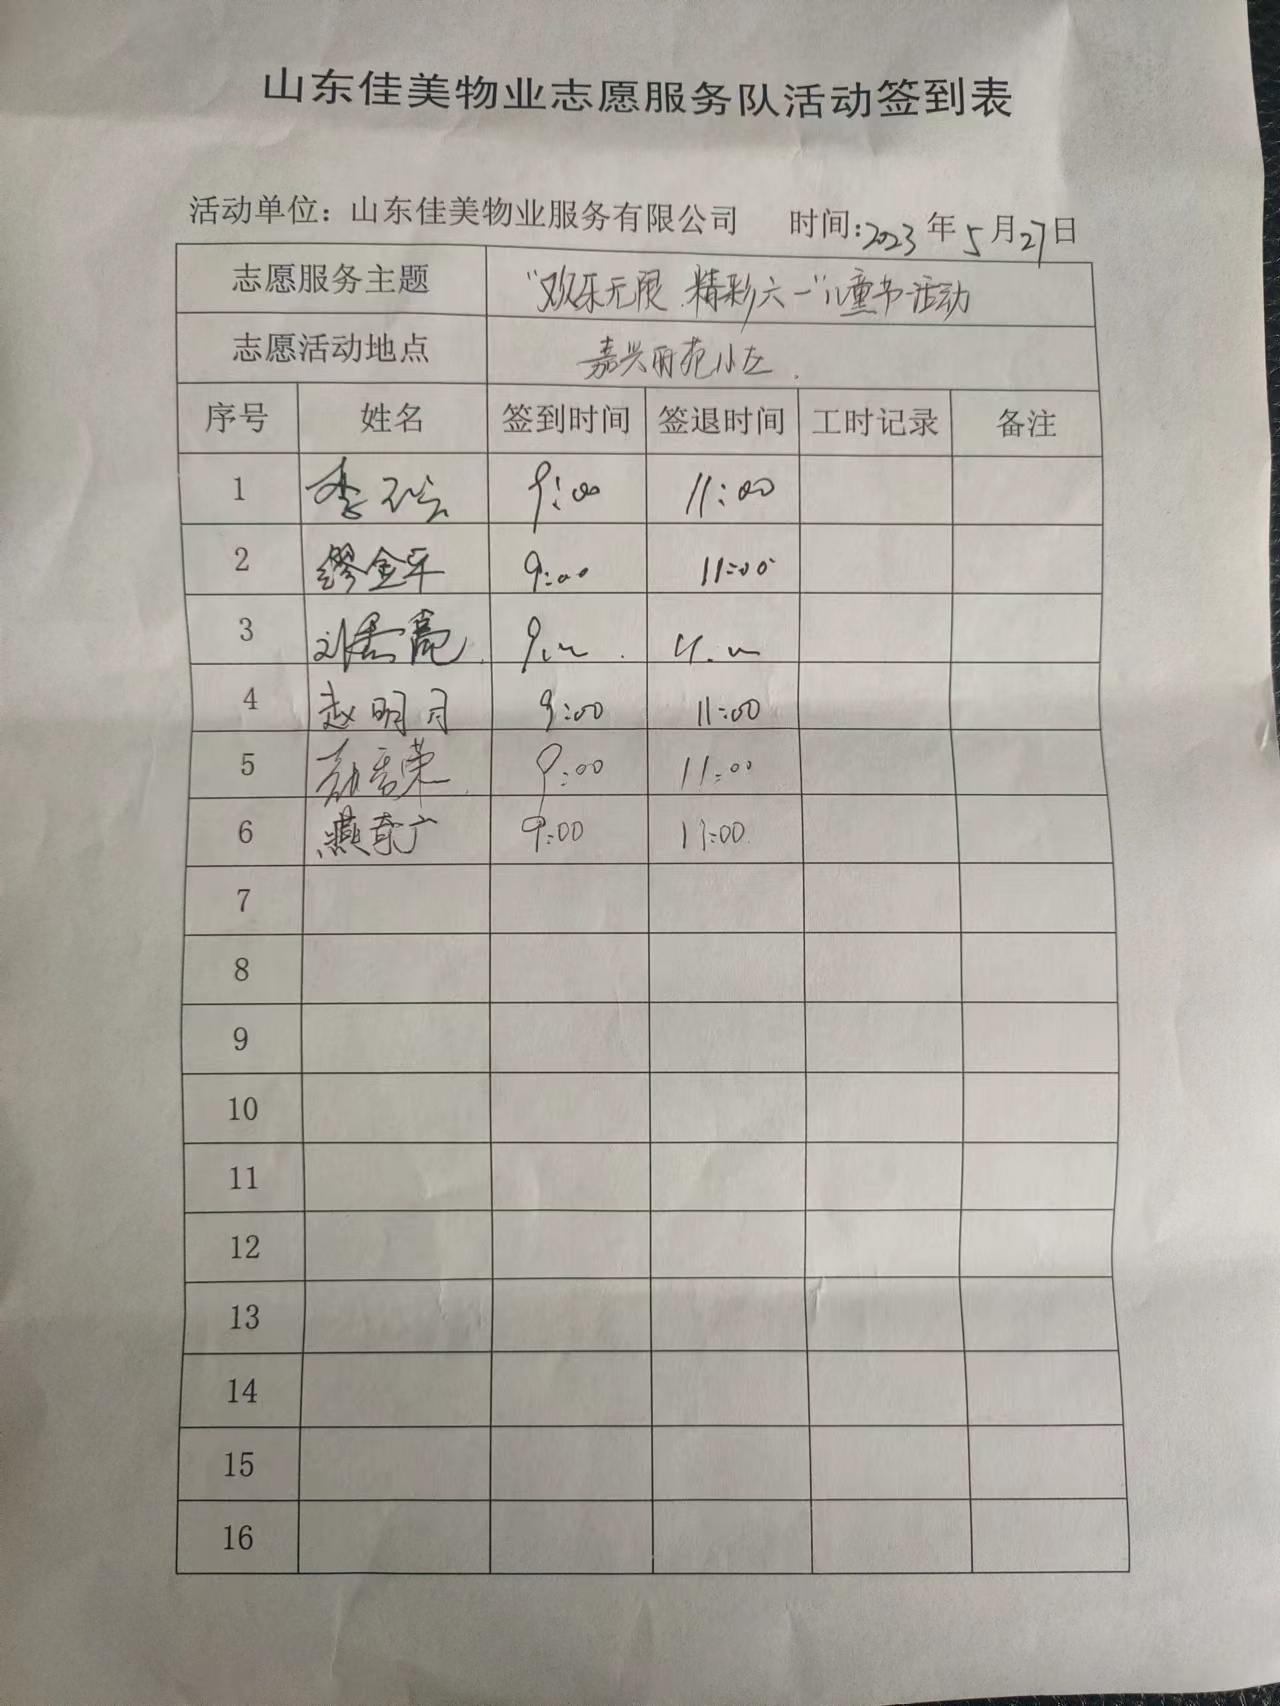 山东佳美物业志愿服务队活动签到表
活动单位：山东佳美物业服务有限公司 时间:2023年5月27日
志愿服务主题 “欢乐无限 精彩六一”儿童节活动
志愿活动地点 嘉兴丽苑小区.
序号 姓名 签到时间 签退时间 工时记录 备注
1 李 9:00 11:00
2 缪金军 9:00 11:00
3 刘 亮 9:00 11:00
4 赵明月 9:00 11:00
5 荣 9:00 11:00
6 燕奇广 9:00 11:00
7
8
9
10
11
12
13
14
15
16